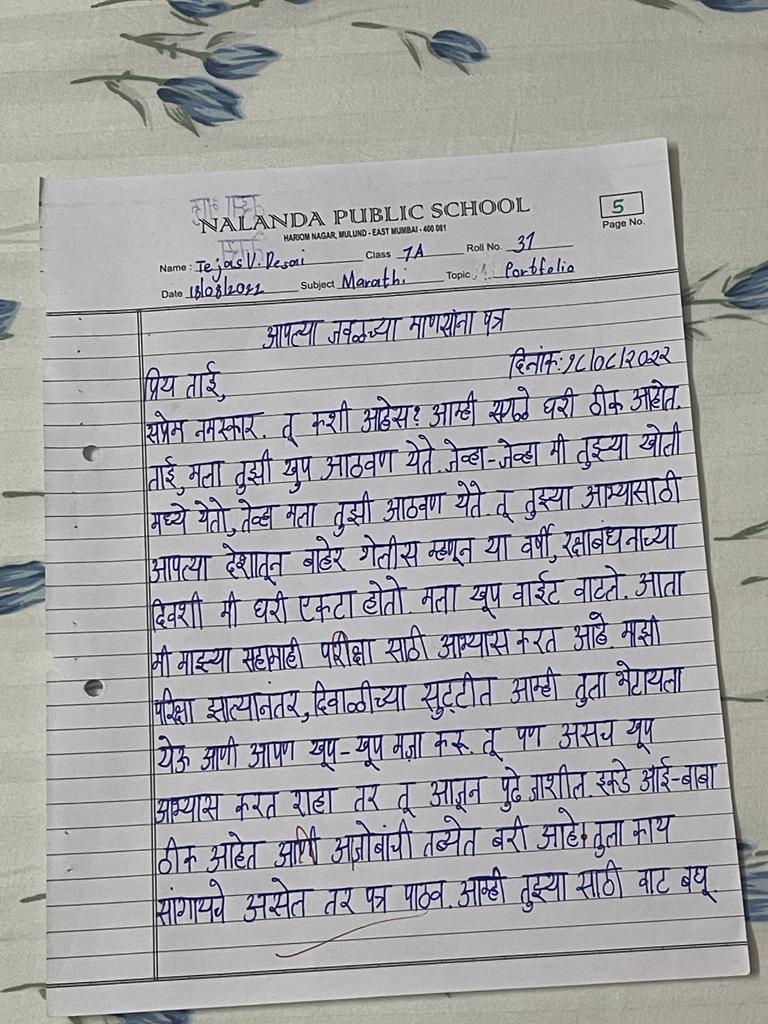 NALANDA PUBLIC SCHOOL
HARIOM NAGAR, MULUND - EAST MUMBAI - 400 081
5
Page No.
Name : Tejas V. Desai Class 7A Roll No. 31
Date 18/08/2022 Subject Marathi Topic Portfolio
आपल्या जवळच्या माणसांना पत्र
दिनांक: १८/०८/२०२२
प्रिय ताई,
सप्रेम नमस्कार. तू कशी आहेस? आम्ही सगळे घरी ठीक आहोत.
ताई, मला तुझी खुप आठवण येते. जेव्हा-जेव्हा मी तुझ्या खोती
मध्ये येतो, तेव्हा मला तुझी आठवण येते. तू तुझ्या आभ्यासाठी
आपल्या देशातून बाहेर गेलीस म्हणून या वर्षी, रक्षाबंधनाच्या
दिवशी मी घरी एकटा होतो. मला खूप वाईट वाटते. आता
मी माझ्या सहामाही परीक्षा साठी आभ्यास करत आहे. माझी
परिक्षा झाल्यानंतर, दिवाळीच्या सुट्टीत आम्ही तुला भेटायला
येऊ आणी आपण खूप-खूप मज़ा करू. तू पण असच खूप
आभ्यास करत राहा तर तू आजून पुढे जाशील. इकडे आई-बाबा
ठीक आहेत आणि आजोबांची तब्येत बरी आहे. तुला काय
सांगायचे असेत तर पत्र पाठव. आम्ही तुझ्या साठी वाट बघू.